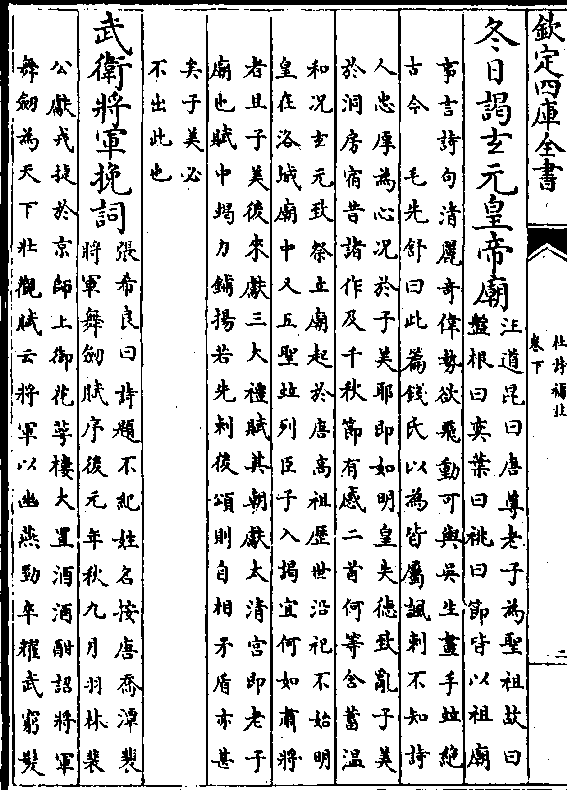 欽定四庫全書
杜詩補註
卷下
二
冬日謁玄元皇帝廟
汪道昆曰唐尊老子為聖祖故曰
盤根曰奕葉曰祧曰節皆以祖廟
事言詩句清麗奇偉勢欲飛動可與吳生畫手並絶
古今 毛先舒曰此篇錢氏以為皆屬諷刺不知詩
人忠厚為心況於子美耶即如明皇失德致亂子美
於洞房宿昔諸作及千秋節有感二首何等含蓄温
和況玄元致祭立廟起於唐高祖歷世沿祀不始明
皇在洛城廟中又五聖並列臣子入謁宜何如肅將
者且子美後來獻三大禮賦其朝獻太清宫即老子
廟也賦中竭力鋪揚若先刺後頌則自相矛盾亦甚
矣子美必
不出此也
武衛將軍挽詞
張希良曰詩題不紀姓名按唐喬潭裴
將軍舞劒賦序後元年秋九月羽林裴
公獻戎捷於京師上御花萼樓大置酒酒酣詔將軍
舞劒為天下壯觀賦云將軍以幽燕勁卒耀武窮髮